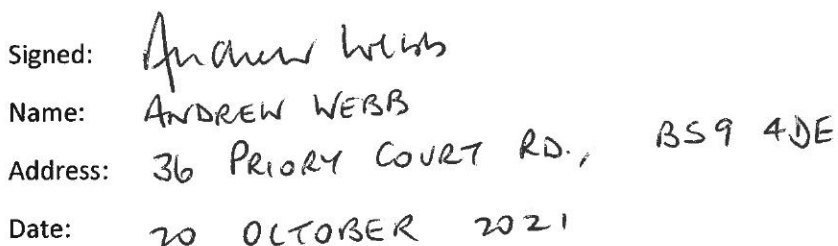 Signed: Andrew Webb
Name: ANDREW WEBB
Address: 36 PRIORY COURT RD., BS9 4DE
Date: 20 OCTOBER 2021